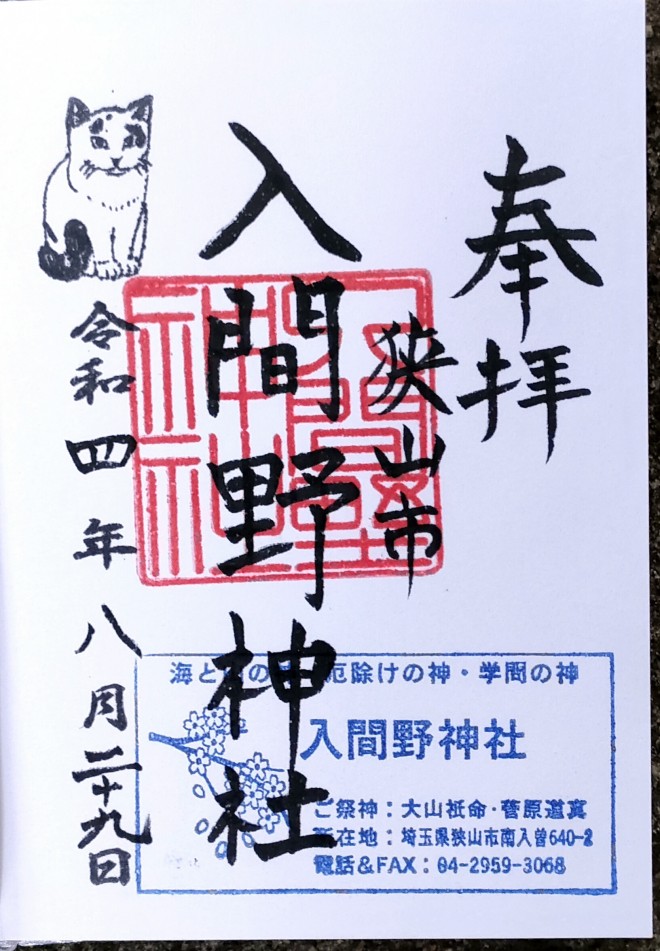 奉拝
狭山市
入間野神社
令和四年八月二十九日
海と山の神・厄除けの神・学問の神
入間野神社
ご祭神：大山祇命・菅原道真
所在地：埼玉県狭山市南入曽640-2
電話&FAX：04-2959-3068